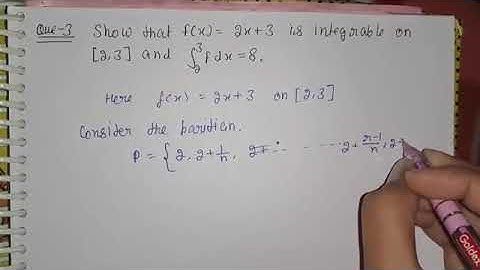 Que-3 Show that f(x) = 2x+3 is integrable on
[2,3] and ∫₂³ f dx = 8.
Here f(x) = 2x+3 on [2,3]
Consider the parition.
P = { 2, 2+1/n, 2+ ... ..... 2+ (r-1)/n, 2+
Goldex